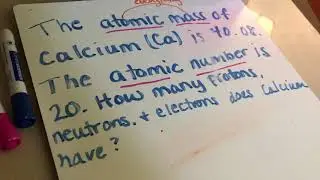 The atomic mass of
Calcium (Ca) is 40.08.
The atomic number is
20. How many protons,
neutrons. + electrons does Calcium
have?